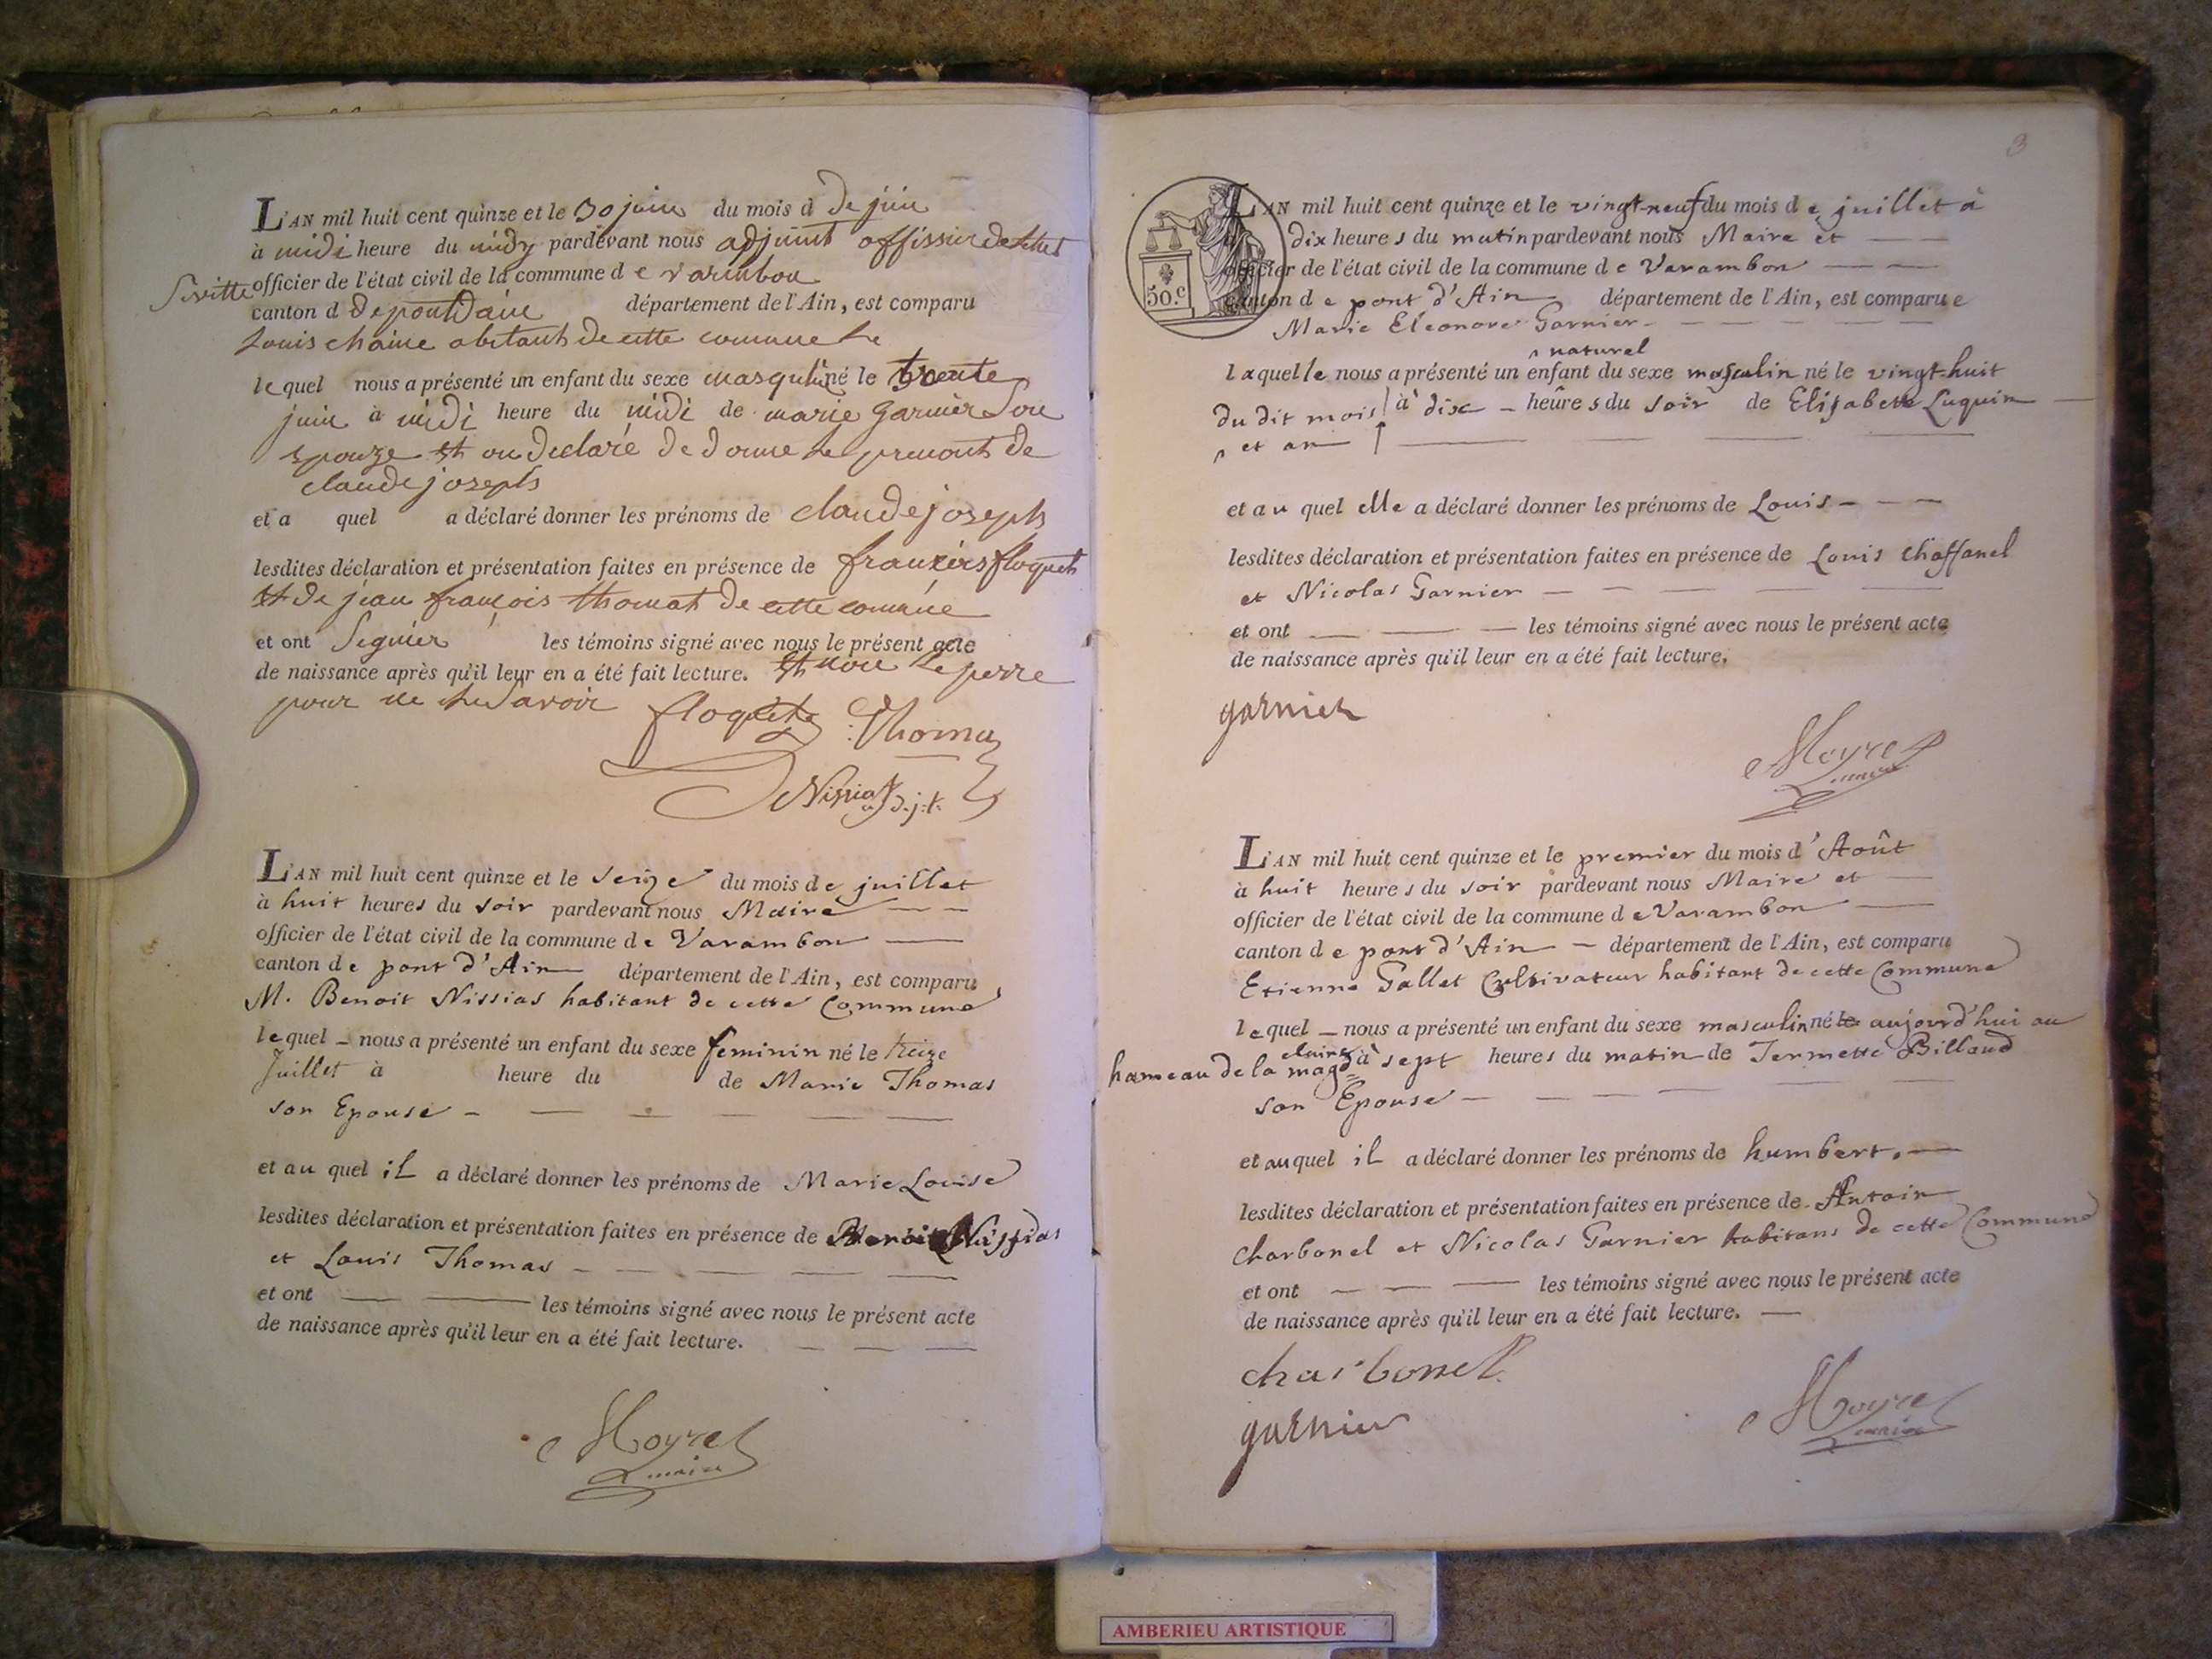 L'AN mil huit cent quinze et le 30 juin du mois d De juin
à midi heure du midy pardevant nous adjoint offissier de létat
Sivitte officier de l'état civil de la commune d e varanbon
canton d De pont Dain département de l'Ain, est comparu
Louis chaine abitant de cette comune Le
le quel nous a présenté un enfant du sexe masqulin né le trente
juin à midi heure du midi de marie garnier Son
epouze et ou declaré de donne le prenont de
claude joseph
et a quel a déclaré donner les prénoms de claude joseph
lesdites déclaration et présentation faites en présence de floquet
et de jean françois thomat de cette comune
et ont Signier les témoins signé avec nous le présent acte
de naissance après qu'il leur en a été fait lecture. et non Le perre
pour ne Le Savoir floquet Thomas
Nissias
L'AN mil huit cent quinze et le seize du mois de juillet
à huit heures du soir pardevant nous Maire
officier de l'état civil de la commune de Varambon
canton de pont d'Ain département de l'Ain, est comparu
M. Benoit Nissias habitant de cette Commune
le quel nous a présenté un enfant du sexe feminin né le treize
Juillet à heure du de Marie Thomas
son Epouse
et au quel il a déclaré donner les prénoms de Marie Louise
lesdites déclaration et présentation faites en présence de Benoit Nissias
et Louis Thomas
et ont les témoins signé avec nous le présent acte
de naissance après qu'il leur en a été fait lecture.
Moyret
maire
3
50.c
L'AN mil huit cent quinze et le vingt-neuf du mois de juillet à
dix heures du matin pardevant nous Maire et
officier de l'état civil de la commune de Varambon
canton de pont d'Ain département de l'Ain, est comparue
Marie Eléonore Garnier
naturel
laquelle nous a présenté un enfant du sexe masculin né le vingt-huit
du dit mois à dix heures du soir de Elisabeth Luquin
et an
et au quel elle a déclaré donner les prénoms de Louis
lesdites déclaration et présentation faites en présence de Louis Chaffanel
et Nicolas Garnier
et ont les témoins signé avec nous le présent acte
de naissance après qu'il leur en a été fait lecture.
garnier
Moyret
maire
L'AN mil huit cent quinze et le premier du mois d'Août
à huit heures du soir pardevant nous Maire et
officier de l'état civil de la commune de Varambon
canton de pont d'Ain département de l'Ain, est comparu
Etienne Gallet Cultivateur habitant de cette Commune
le quel nous a présenté un enfant du sexe masculin né le aujourd'hui au
hameau de la magdelaine à sept heures du matin de Jermette Billoud
son Epouse
et au quel il a déclaré donner les prénoms de humbert.
lesdites déclaration et présentation faites en présence de Antoin
Charbonel et Nicolas Garnier habitans de cette Commune
et ont les témoins signé avec nous le présent acte
de naissance après qu'il leur en a été fait lecture.
charbonel
garnier
Moyret
maire
AMBERIEU ARTISTIQUE